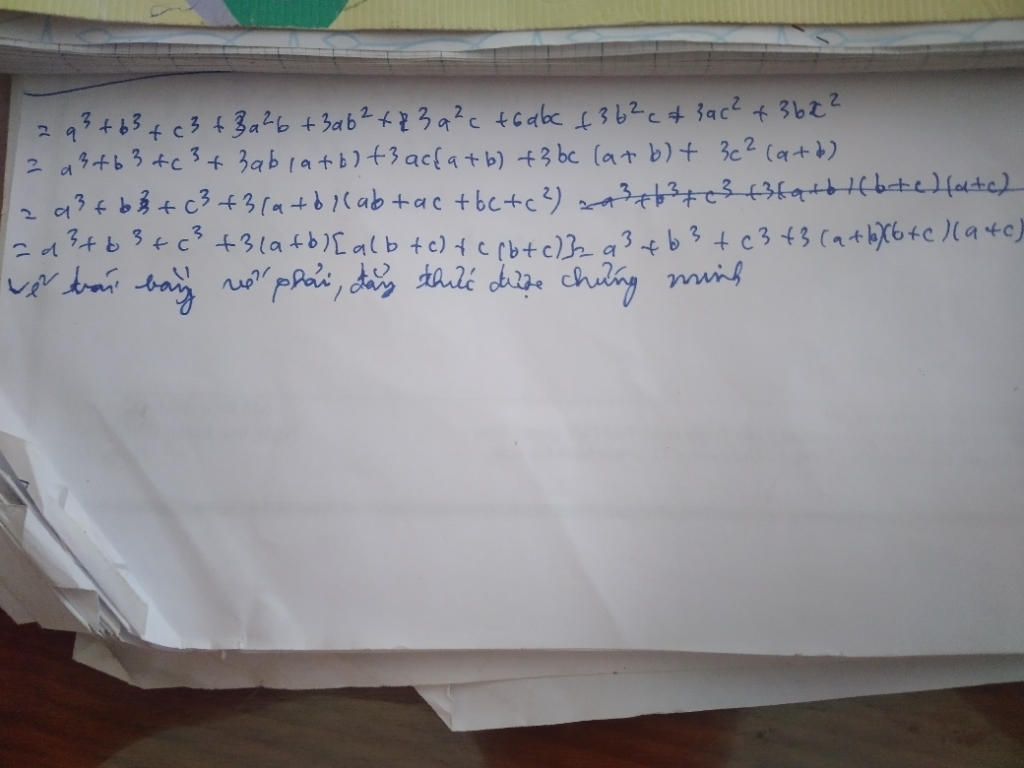 = a³ + b³ + c³ + 3a²b + 3ab² + 3a²c + 6abc + 3b²c + 3ac² + 3bc²
= a³ + b³ + c³ + 3ab(a+b) + 3ac(a+b) + 3bc(a+b) + 3c²(a+b)
= a³ + b³ + c³ + 3(a+b)(ab + ac + bc + c²) = a³ + b³ + c³ + 3(a+b)(b+c)(a+c)
= a³ + b³ + c³ + 3(a+b)[a(b+c) + c(b+c)] = a³ + b³ + c³ + 3(a+b)(b+c)(a+c)
Vế trái bằng vế phải, đẳng thức được chứng minh